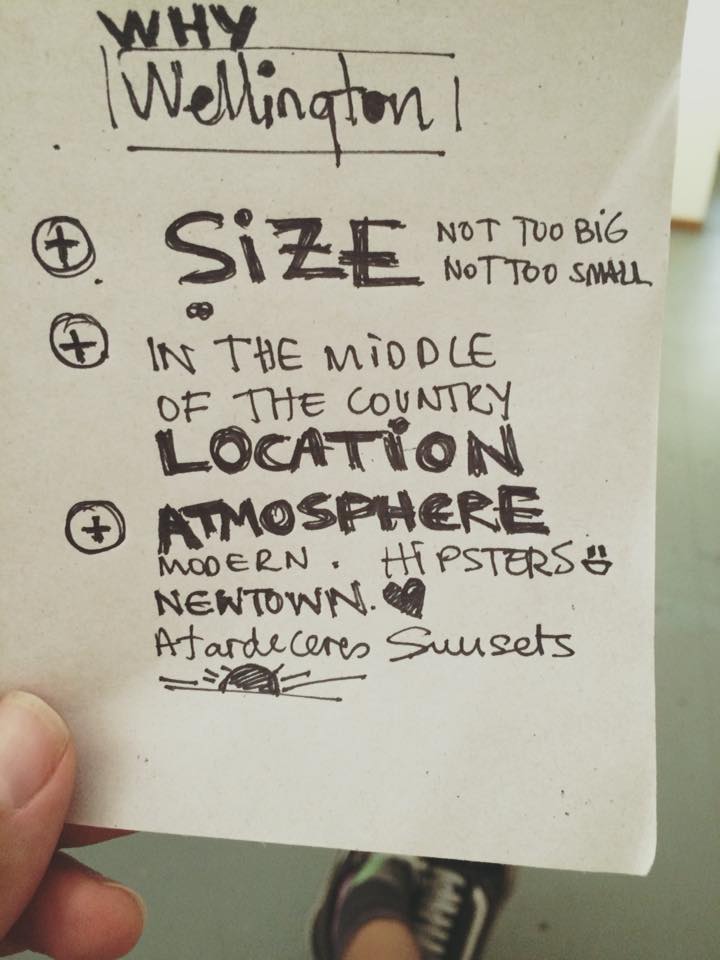 WHY
Wellington
+ SiZE NOT TOO BiG
NOT TOO SMALL
+ IN THE MiDDLE
OF THE COUNTRY
LOCATiON
+ ATMOSPHERE
MODERN. HiPSTERS
NEWTOWN. ♥
Atardeceres Sunsets